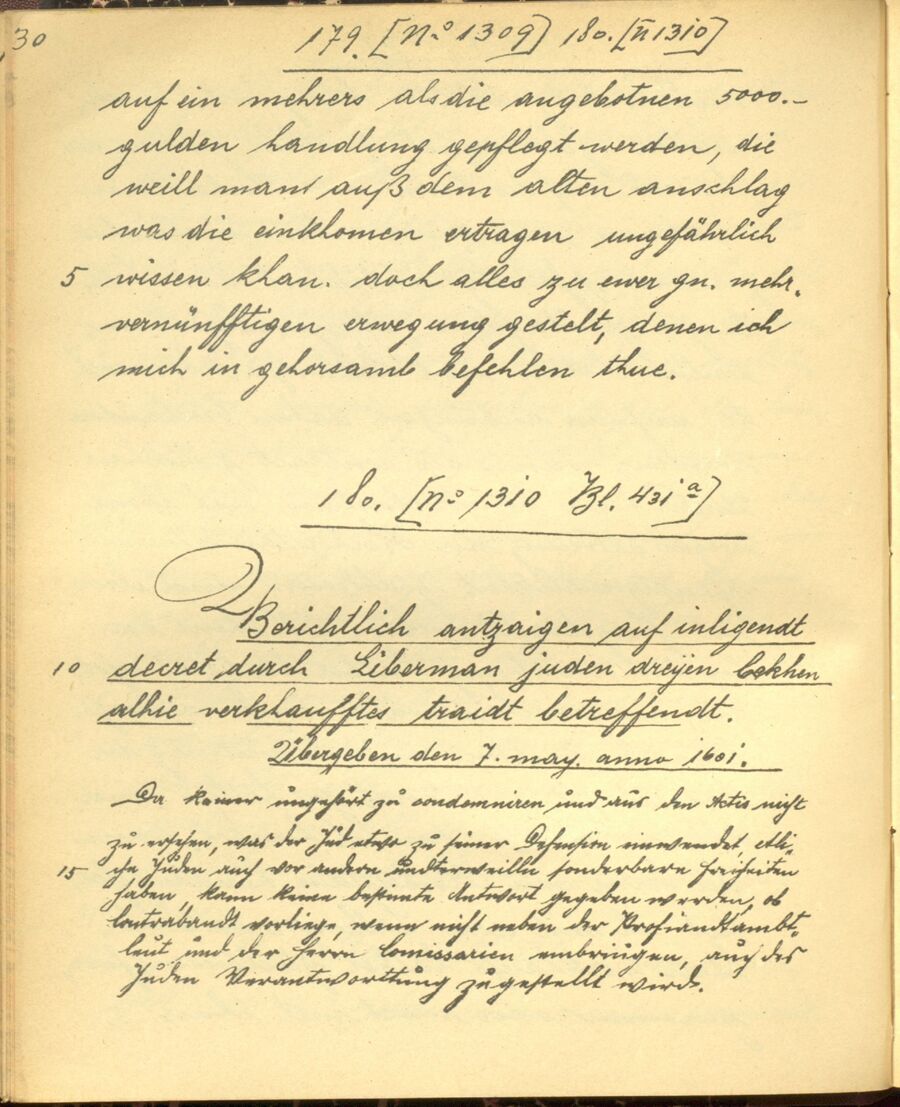 30
179. [No 1309] 180. [n 1310]
auf ein mehrers als die angebotnen 5000.-
gulden handlung gepflegt werden, die
weill man auß dem alten anschlag
was die einkhomen ertragen ungefährlich
5 wissen khan. doch alles zu ewer gn. mehr.
vernünfftigen erwegung gestelt, denen ich
mich in gehorsamb befehlen thue.
180. [No 1310 Bl. 431 a]
Berichtlich antzaigen auf inligendt
10 decret durch Liberman juden dreyen bekhen
alhie verkhaufftes traidt betreffendt.
Übergeben den 7. may. anno 1601.
Da keiner ungehört zu condemniren und aus den Actis nicht
zu ersehen, was der Jud etwo zu seiner Defension einwendet, etli-
15 che Juden auch vor andern undterweilln sonderbare Freiheiten
haben, kann keine bestimte Antwort gegeben werden, ob
Contrabandt vorliege, wenn nicht neben der Profiandtambt-
leut und der Herrn Comissarien einbringen, auch des
Juden Verantworttung zugestellt wird.